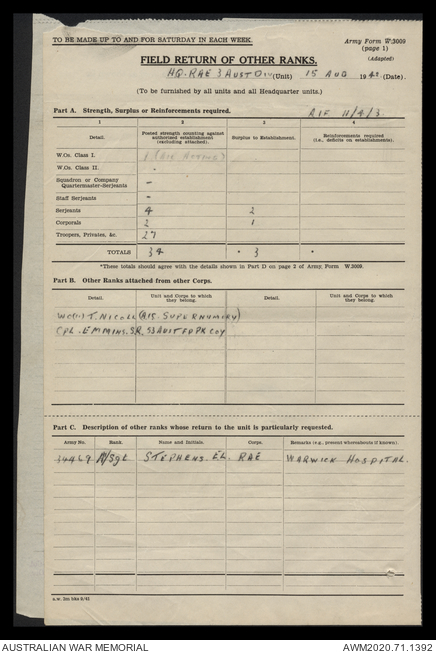 TO BE MADE UP TO AND FOR SATURDAY IN EACH WEEK.
Army Form W.3009
(page 1)
(Adapted)
FIELD RETURN OF OTHER RANKS.
HQ. RAE 3 AUST DIV (Unit) 15 AUG 194 (Date).
(To be furnished by all units and all Headquarter units.)
Part A. Strength, Surplus or Reinforcements required. AIF 11/4/3
1 2 3 4
Detail. Posted strength counting against authorised establishment (excluding attached). Surplus to Establishment. Reinforcements required (i.e., deficits on establishments).
W.Os. Class I. 1
W.Os. Class II. -
Squadron or Company Quartermaster-Serjeants -
Staff Serjeants -
Serjeants 4 2
Corporals 2 1
Troopers, Privates, &c. 27
TOTALS 34 * 3 *
*These totals should agree with the details shown in Part D on page 2 of Army Form W.3009.
Part B. Other Ranks attached from other Corps.
Detail. Unit and Corps to which they belong. Detail. Unit and Corps to which they belong.
WO(1) T. NICOLL (AIS SUPERNUMERY)
CPL. EMMINS. S.R. 53 AUST FD PK COY
Part C. Description of other ranks whose return to the unit is particularly requested.
Army No. Rank. Name and Initials. Corps. Remarks (e.g., present whereabouts if known).
34469 A/Sgt STEPHENS. E.L. RAE WARWICK HOSPITAL.
s.w. 3m bks 2/42
AUSTRALIAN WAR MEMORIAL
AWM2020.71.1392